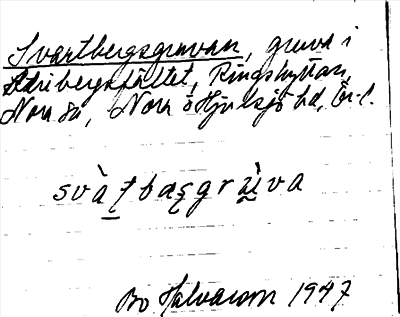 Svartbergsgruvan, gruva i
Stribergsfältet, Ringshyttan,
Nora sn, Nora o Hjulsjö hd, Ör. l.
svàt̲bæs̨grù̲va
Bo Halvarson 1947